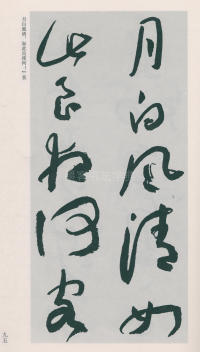 月白風清如
此良夜何客
月白風清，如此良夜何？客
九五